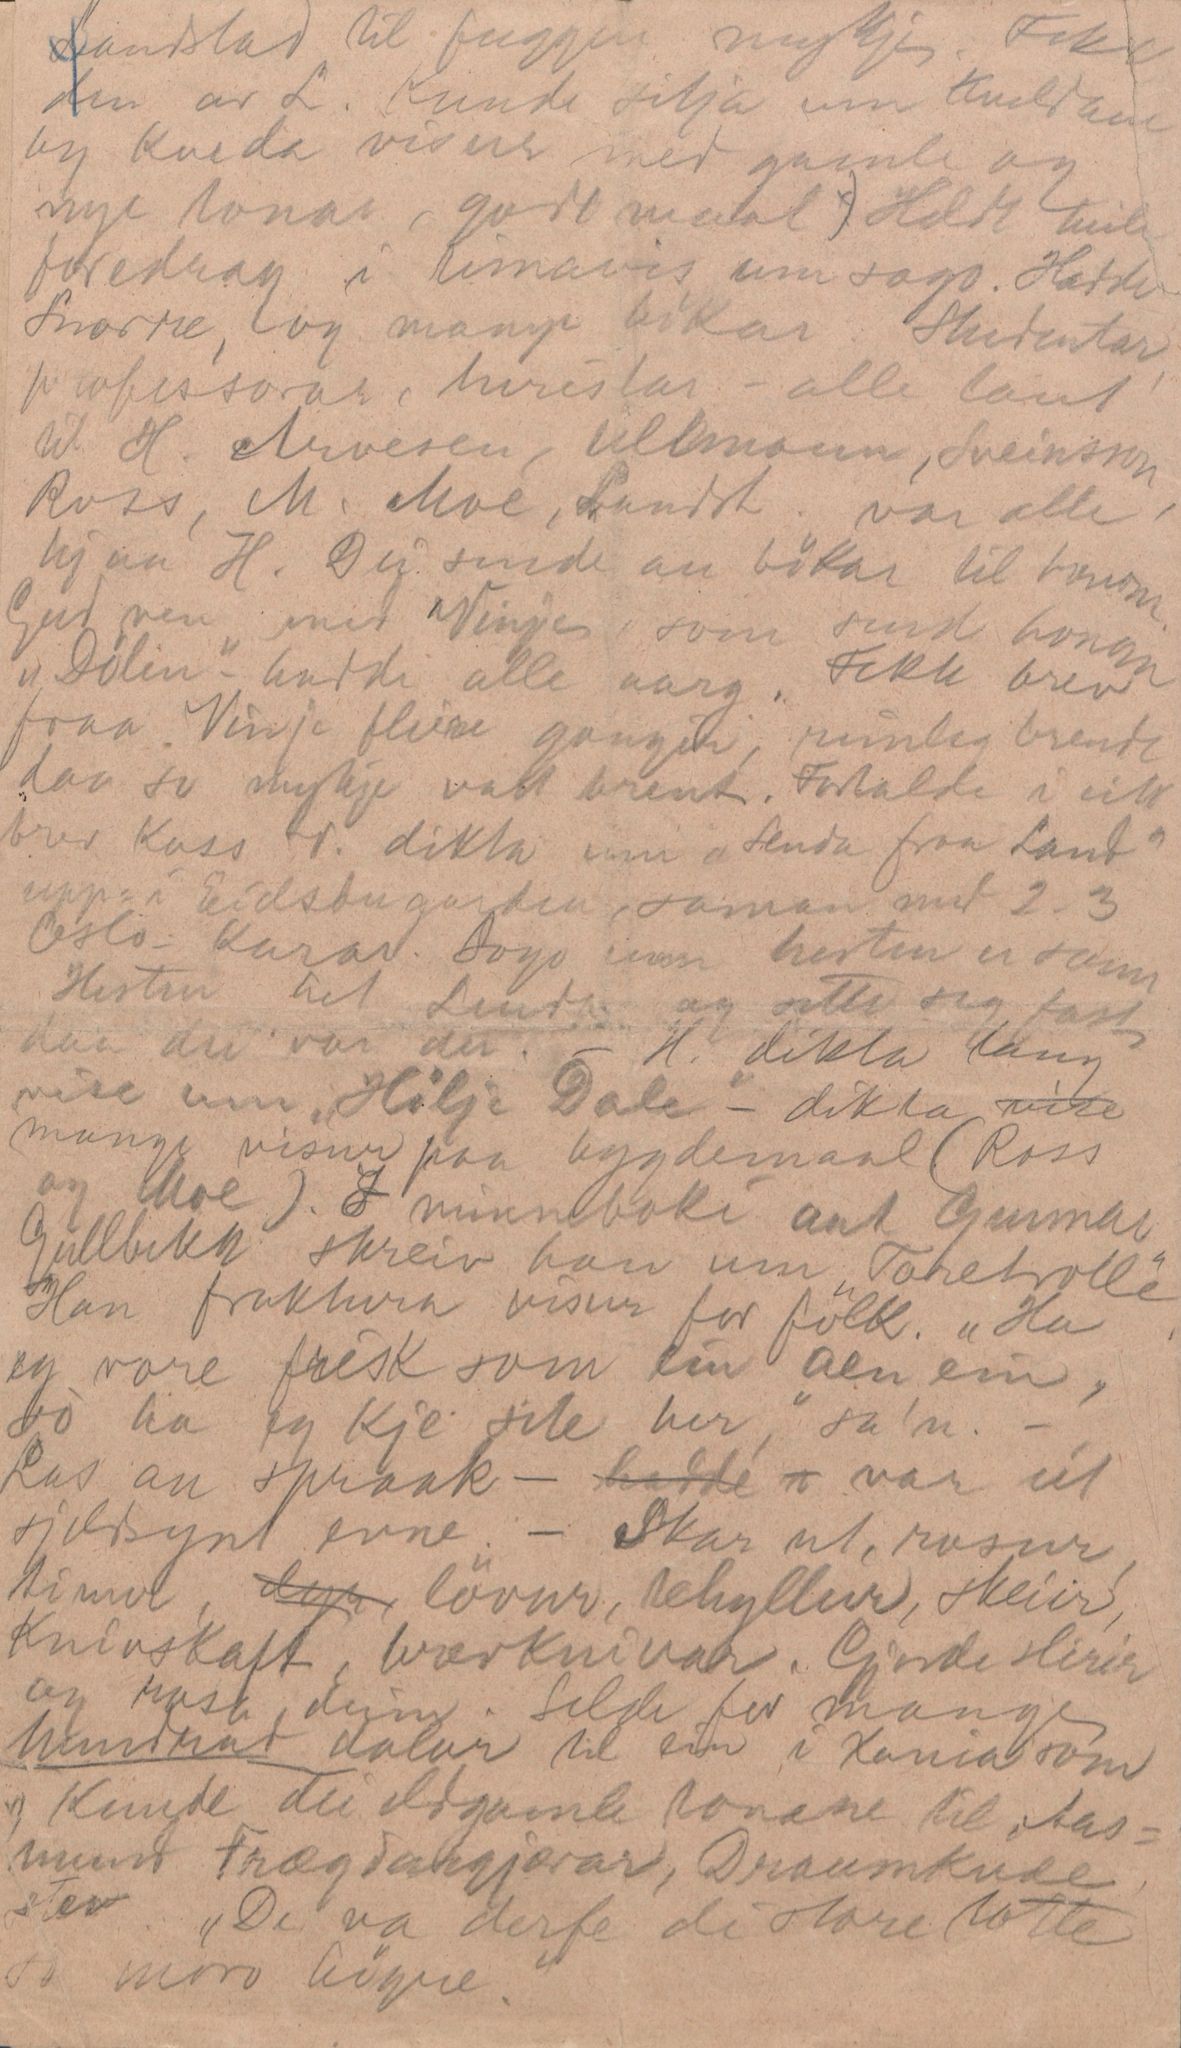 Landstad til fuggen mykje. Fekk
den av L. Kunde sitja um kveldane
og kveda visur med gamle og
nye tonar, godt maal x) Heldt heile
foredrag i timavis um sogo. Hadde
Snorre, og mange bökar. Studentar,
professorar, turistar - alle laut
til H. Arvesen, Ullmann, Sveinsson,
Ross, M. Moe, Landst. var alle
hjaa H. Dei sende an bökar til honom.
God ven med Vinje, som send honom
"Dölen" - hadde alle aarg. Fekk brev
fraa Vinje fleire gonger, rimeleg brende
daa so mykje vart brent. Fortalde i eitt
brev koss V. dikta um "Storegut" 
upp i Eidsbugarden, saman med 2-3
Oslo-karar. Sogo um hesten er sann
Hesten het Linda og sette seg fast
daa dei var der. - H. dikta lang
vise um "Hölje Dale" - dikta vise
mange visur paa bygdemaal (Ross
og Moe). I minneboki aat Gunnar
Gullbekk skreiv han um "Toretrolle"
Han fraktura visur for fölk. "Ha
eg vore frisk som ein aen ein,
so ha eg kje site her," sa'n. -
Las an spraak - hadde var eit
sjeldsynt evne. - Skar ut, rosur,
tinur, lövur, tehyllur, skeier,
knivskaft, brevknivar. Gjorde slirir
og rosa deim. Selde for mange
hundrad dalar til ein i Kania som
x) Kunde dei eldgamle tonane til Aas=
mund Frægdargjævar, Draumkvæe,
stev. "De va derfe di store totte
so moro högre."